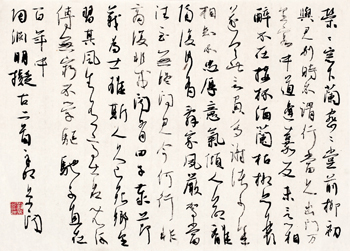 榮〻窗下蘭密〻堂前柳初
與君別時不謂行當久出門万
里客中道逢嘉友未言心相
醉不在接杯酒蘭枯柳亦衰
遂令此言負多謝諸少年
相知不忠厚意氣傾人命離
隔復何有辭家夙嚴駕當
往至無終問君今何行非
商復非戎聞有田子泰節
義為士雄斯人久已死鄉里
習其風生有高世名既沒
傳無窮不學狂馳子直在
百年中
陶淵明擬古二首